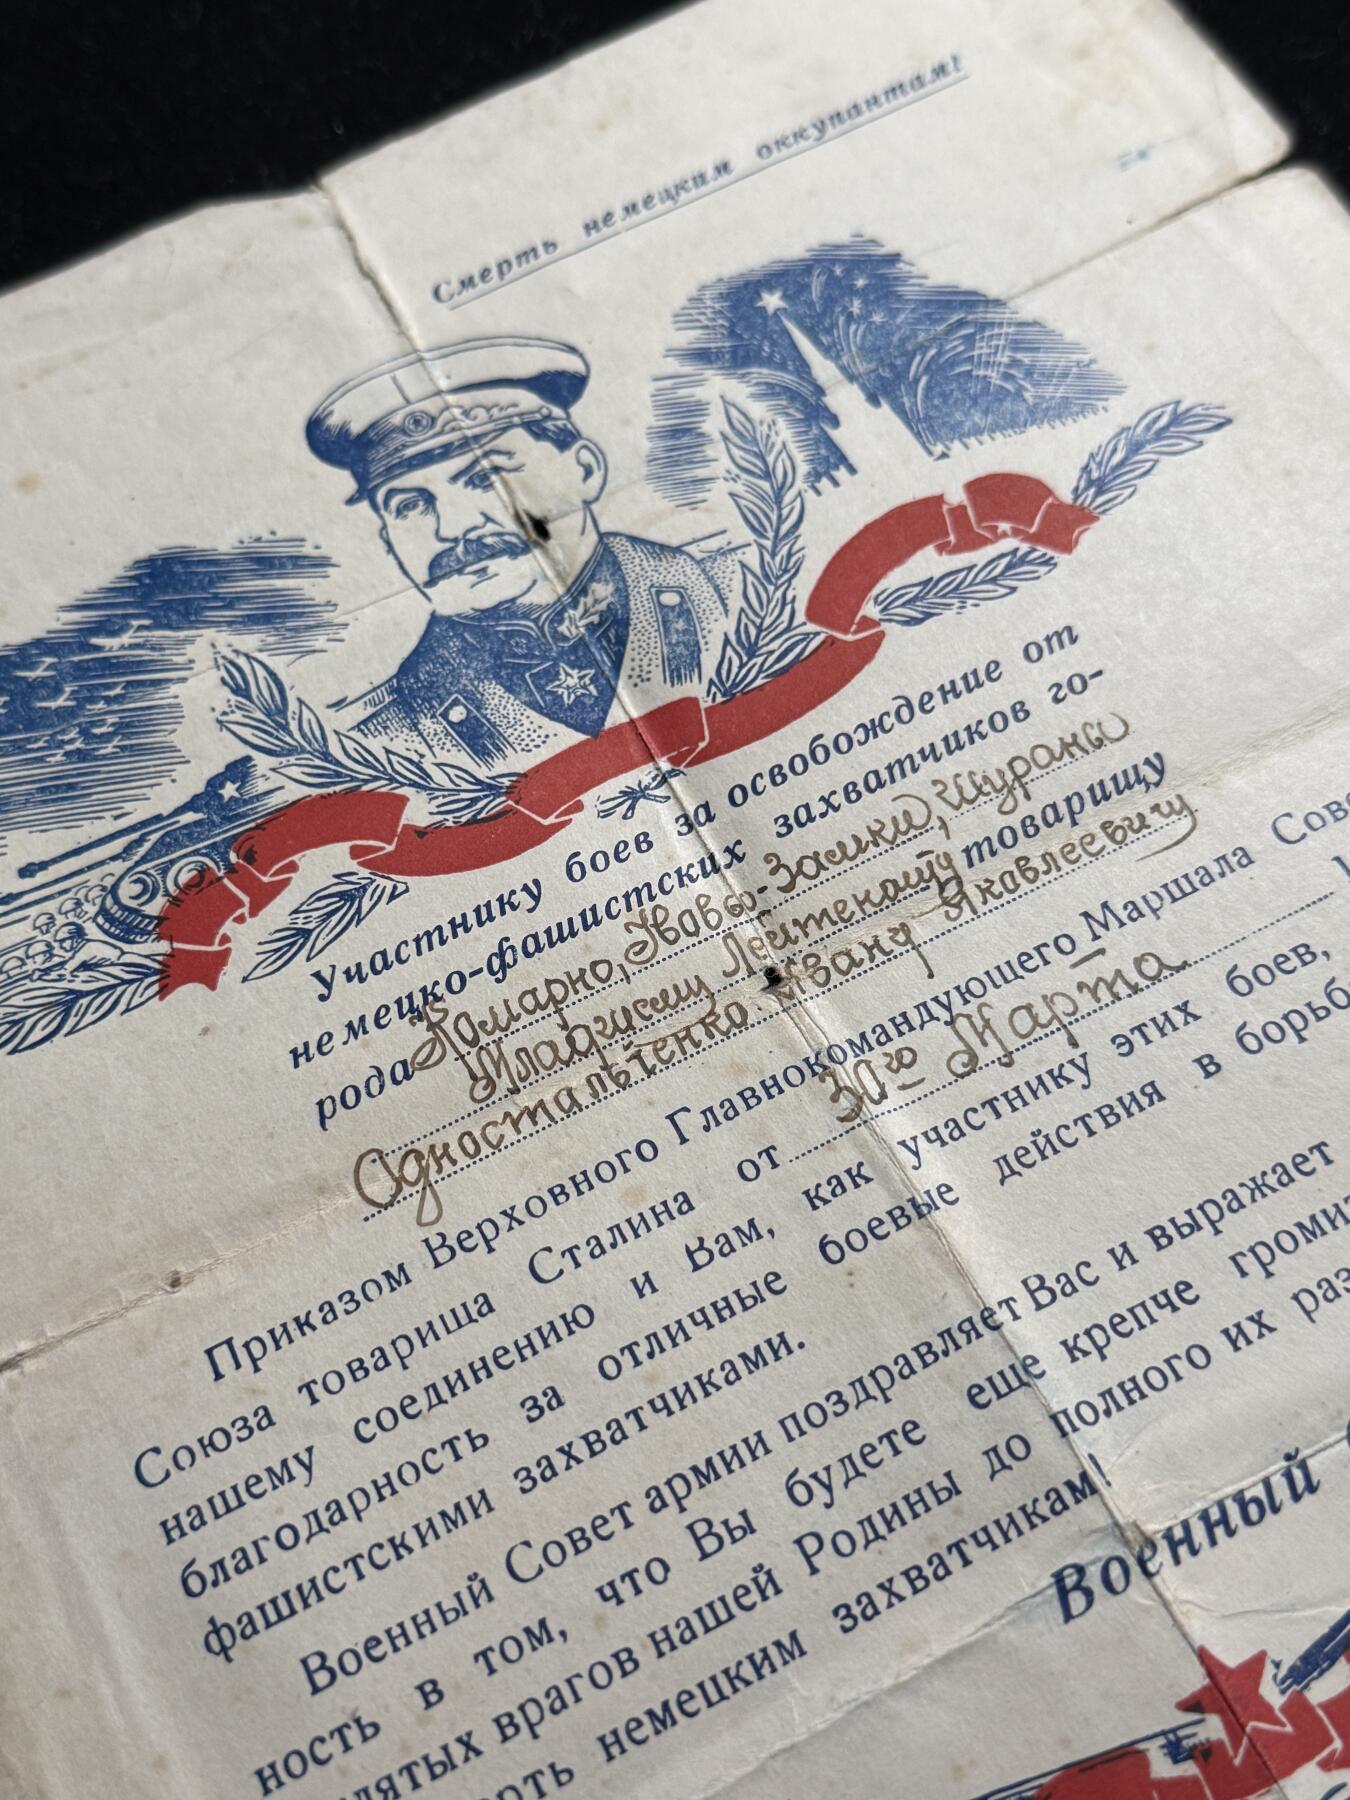 Смерть немецким оккупантам!
Участнику боев за освобождение от
немецко-фашистских захватчиков го-
рода Комарно, Новы-Замки, Шураны
Младшему Лейтенанту товарищу
Одностальченко Ивану Яковлевичу
Приказом Верховного Главнокомандующего Маршала Сове
Союза товарища Сталина от 30го Марта 1
нашему соединению и Вам, как участнику этих боев,
благодарность за отличные боевые действия в борьбе
фашистскими захватчиками.
Военный Совет армии поздравляет Вас и выражает
ность в том, что Вы будете еще крепче громить
лятых врагов нашей Родины до полного их раз
рть немецким захватчикам!
Военный